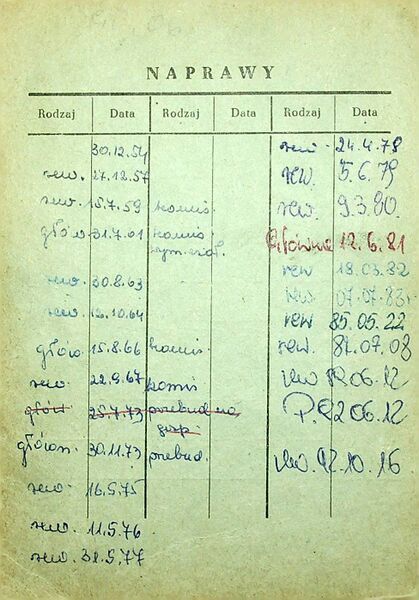 NAPRAWY
Rodzaj Data Rodzaj Data Rodzaj Data
30.12.54 rew. 24.4.78
rew. 27.12.57 rew. 5.6.79
rew. 15.7.59 komis. rew. 9.3.80.
głów 31.7.61 komis Główna 12.6.81
wym. zał.
rew 18.03.82
rew. 30.8.63 rew 07.07.83
rew. 12.10.64 rew 85.05.22
głów. 15.8.66 komis. rew. 87.07.08
rew. 22.9.67 komis rew 89.06.12
głów 25.7.73 przebud na P. 92 06.12
gosp.
główn. 30.11.73 przebud. rew 92.10.16
rew. 16.5.75
rew. 11.5.76
rew. 31.5.77